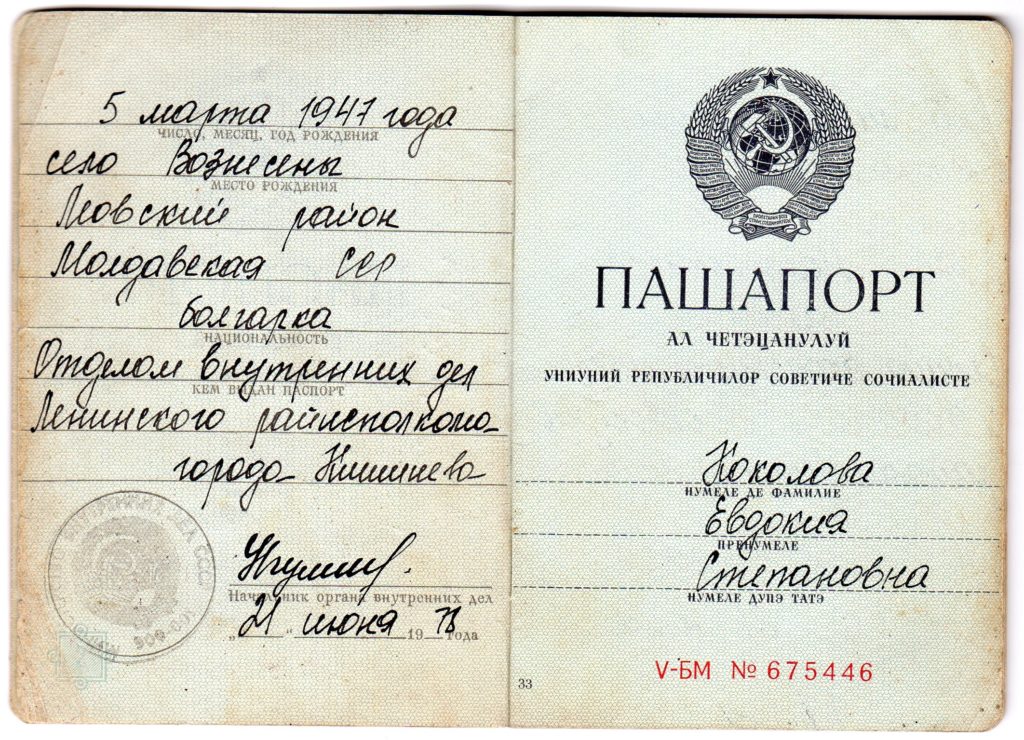 5 марта 1947 года
ЧИСЛО, МЕСЯЦ, ГОД РОЖДЕНИЯ
село Вознесены
МЕСТО РОЖДЕНИЯ
Леовский район
Молдавская ССР
болгарка
НАЦИОНАЛЬНОСТЬ
Отделом внутренних дел
КЕМ ВЫДАН ПАСПОРТ
Ленинского райисполкома
города Кишинева
ВНУТРЕННИХ ДЕЛ СССР
Начальник органа внутренних дел
„21“ июня 1978 года
ПАШАПОРТ
АЛ ЧЕТЭЦАНУЛУЙ
УНИУНИЙ РЕПУБЛИЧИЛОР СОВЕТИЧЕ СОЧИАЛИСТЕ
Коколова
НУМЕЛЕ ДЕ ФАМИЛИЕ
Евдокия
ПРЕНУМЕЛЕ
Степановна
НУМЕЛЕ ДУПЭ ТАТЭ
V-БМ № 675446
33